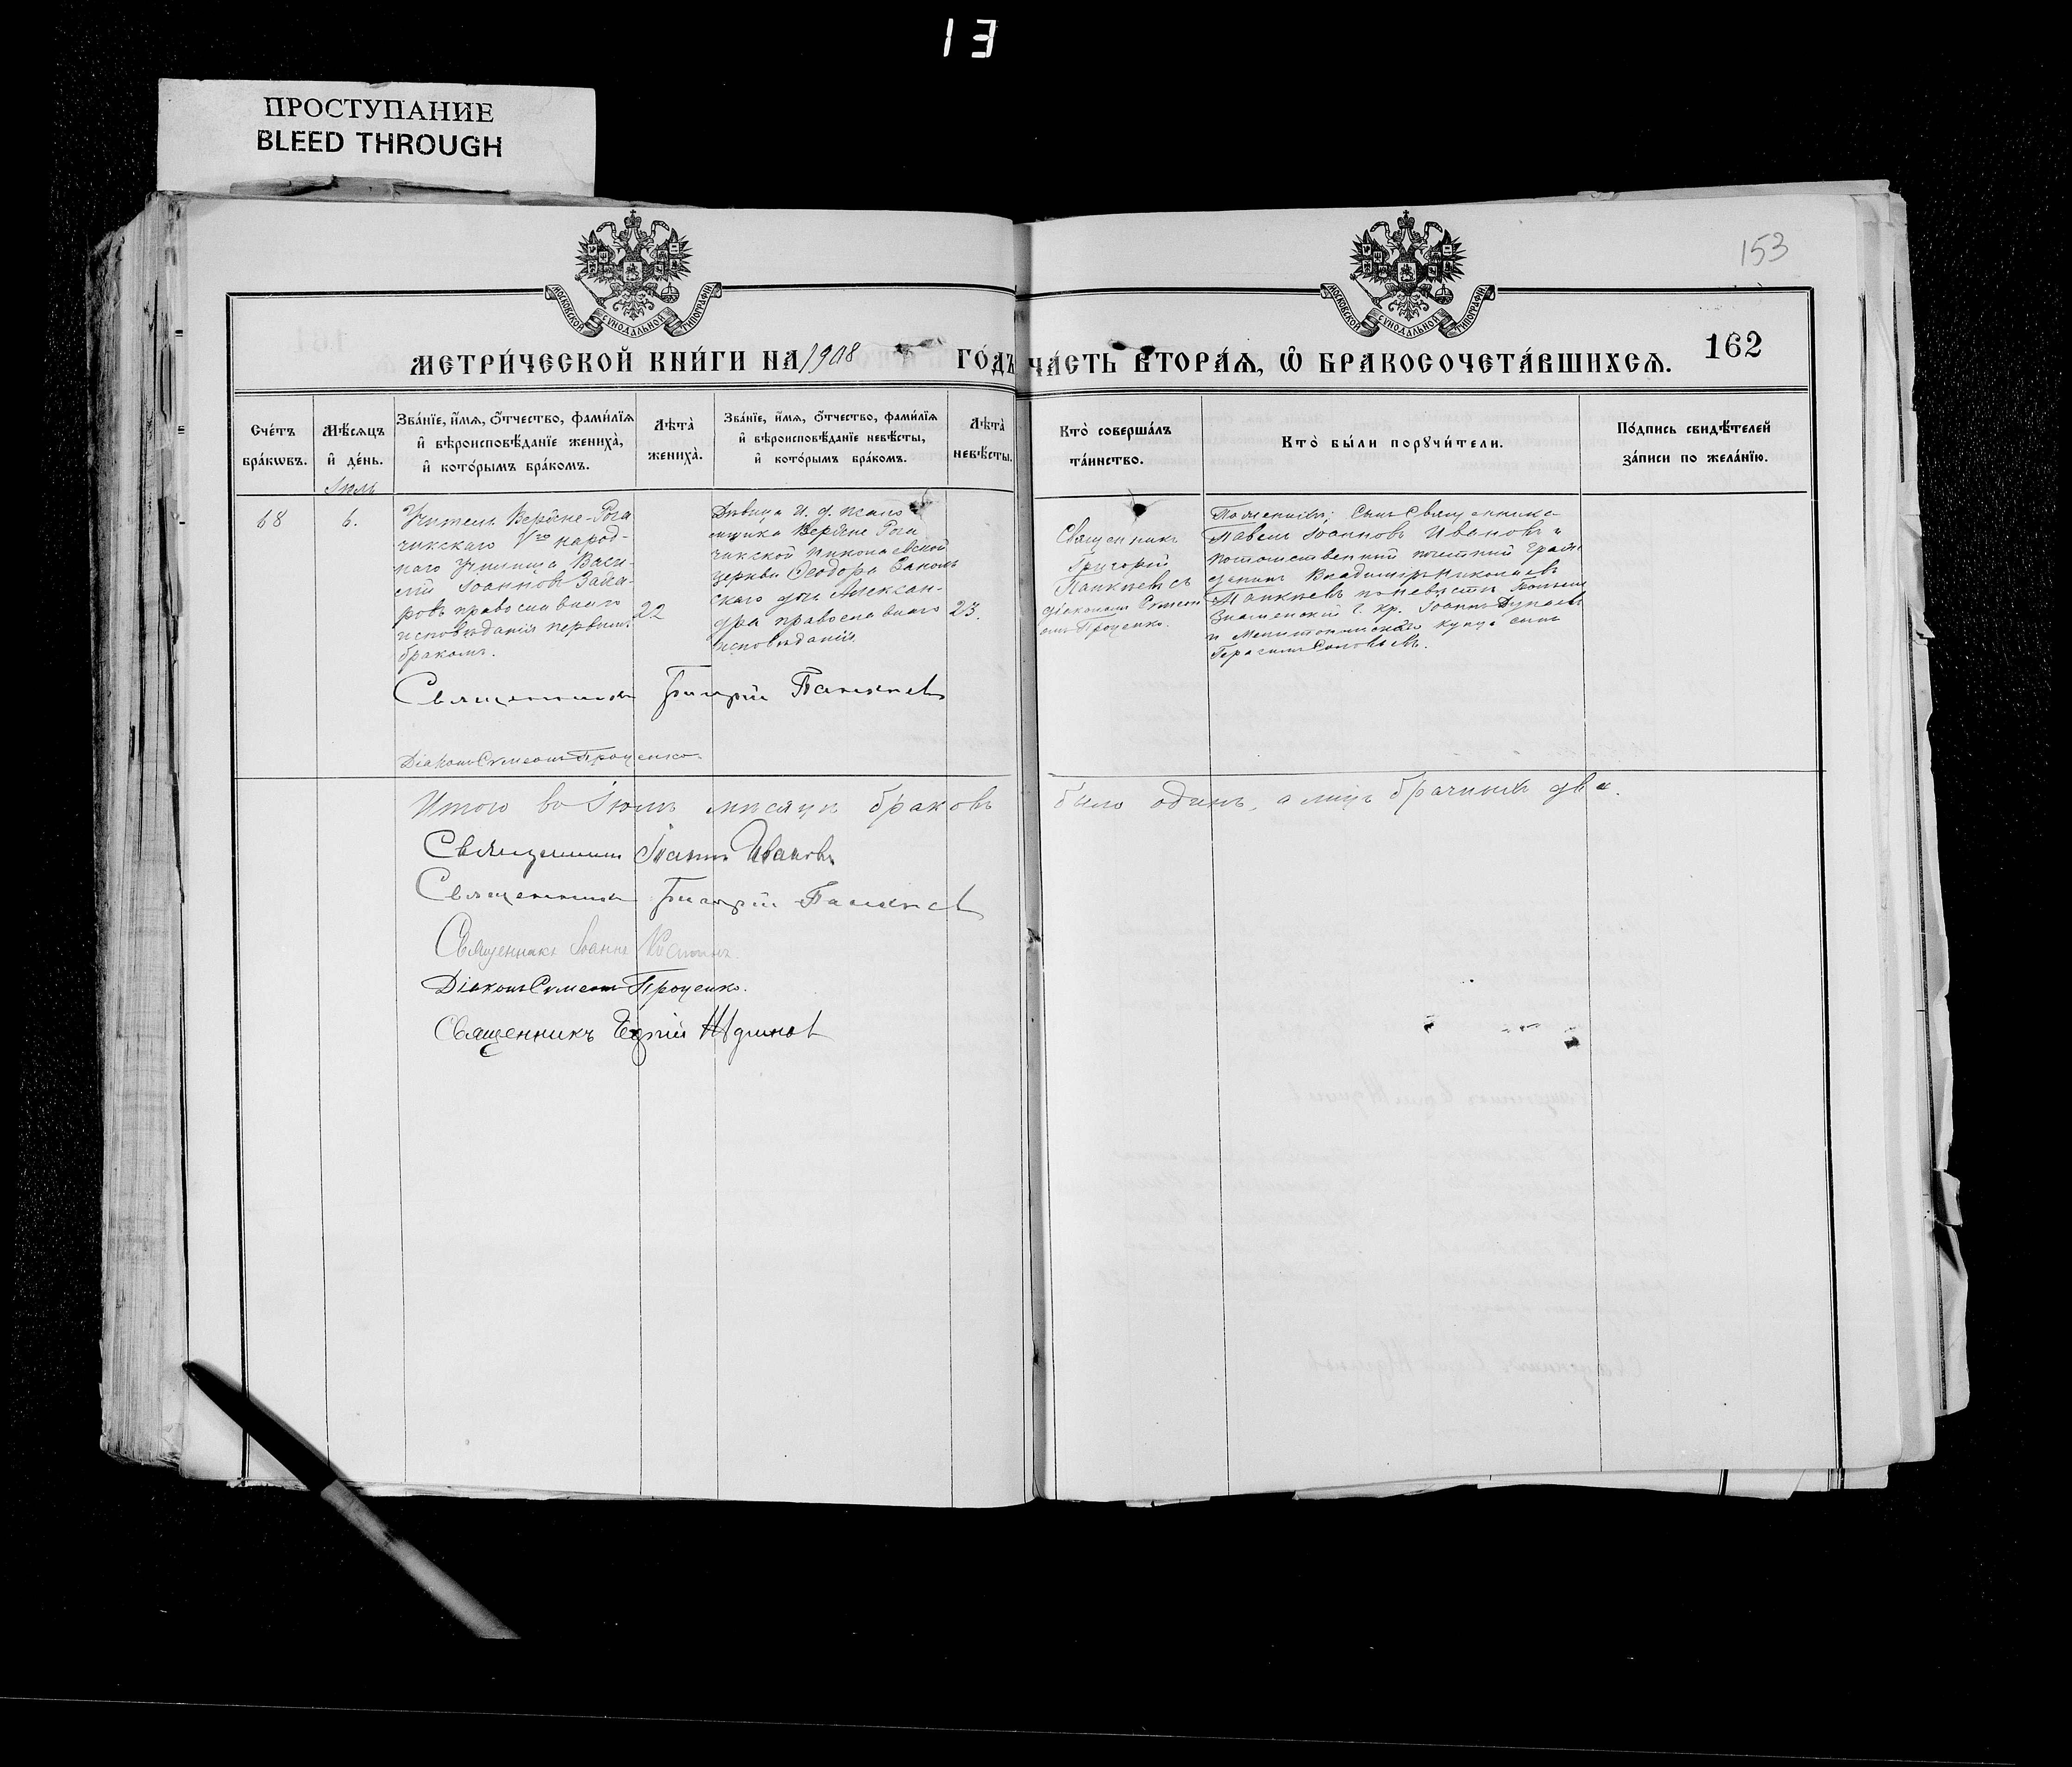 13
ПРОСТУПАНИЕ
BLEED THROUGH
153
МОСКОВСКОЙ СѴНОДАЛЬНОЙ ТИПОГРАФІИ
МОСКОВСКОЙ СѴНОДАЛЬНОЙ ТИПОГРАФІИ
МЕТРИ́ЧЕСКОЙ КНИ́ГИ НА 1908 ГО́ДЪ ЧА́СТЬ ВТОРА́Ѧ, Ѽ БРАКОСОЧЕТА́ВШИХСѦ.
162
Сче́тъ
бра́кѡвъ.
Мѣ́сяцъ
и҆ де́нь.
Зва́нїе, и҆́мѧ, ѻ҆́тчество, фами́лїѧ
и҆ вѣроисповѣ́данїе жениха̀,
и҆ кото́рымъ бра́комъ.
Лѣта̀
жениха̀.
Зва́нїе, и҆́мѧ, ѻ҆́тчество, фами́лїѧ
и҆ вѣроисповѣ́данїе невѣ́сты,
и҆ кото́рымъ бра́комъ.
Лѣта̀
невѣ́сты.
Кто̀ соверша́лъ
та́инство.
Кто̀ бы́ли порꙋчи́тели.
По́дпись свидѣ́телей
за́писи по жела́нїю.
Іюль
68
6.
Учитель Верхне-Рога
чикскаго народ-
наго училища Васи-
лій Іоанновъ
ровъ православнаго
исповѣданія первымъ
бракомъ.
22
Дѣвица и. д. псалом
щика Верхне Рога
чикской Николаевской
церкви Ѳеодора
скаго дочь Алексан-
дра православнаго
исповѣданія
23.
Священникъ
Григорій
Панкѣевъ съ
діакономъ Симео
номъ Проценко.
По женихѣ: сынъ Священника
Павелъ Іоанновъ Ивановъ и
потомственный почетный граж
данинъ Владимиръ Николаевъ
Панкѣевъ по невѣстѣ
Знаменскій с. кр. Іоаннъ
и Мелитопольскаго купца сынъ
Герасимъ Соловьевъ.
Священникъ Григорій Панкѣевъ
Діаконъ Симеонъ Проценко.
Итого въ Іюлѣ мѣсяцѣ браковъ было одинъ, а лицъ брачныхъ два.
Священникъ Іоаннъ Ивановъ
Священникъ Григорій Панкѣевъ
Священникъ Іоаннъ
Діаконъ Симеонъ Проценко.
Священникъ